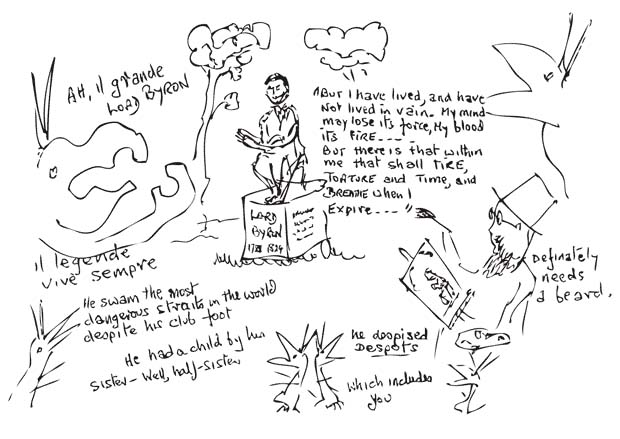 AH, il grande
LORD BYRON
"But I have lived, and have
not lived in vain. My mind
may lose its force, My blood
its FIRE---
But there is that within
me that shall TIRE,
TORTURE and Time, and
BREATHE when I
Expire---"
LORD
BYRON
1788 1824
il legende
vive sempre
Definately
needs
a beard.
He swam the most
dangerous straits in the world
despite his club foot
He had a child by his
sister - Well, half-sister
He despised
DESPOTS
which includes
you